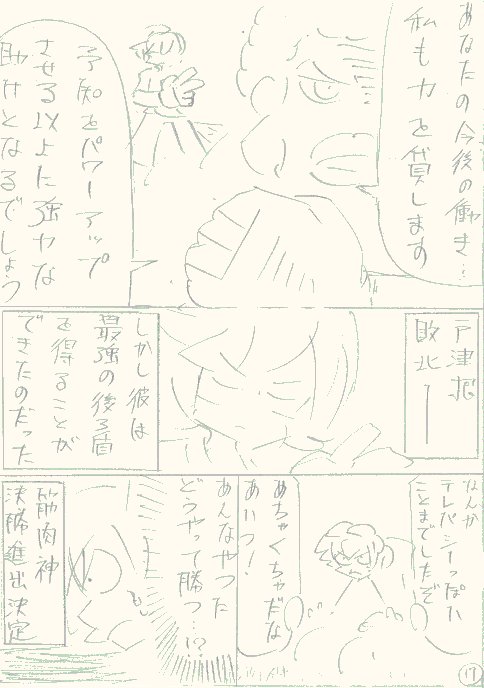 あなたの今後の働き…
私も力を貸します
予知をパワーアップ
させる以上に強力な
助けとなるでしょう
戸津振
敗北―
しかし彼は
最強の後ろ盾
を得ることが
できたのだった
なんか
テレパシーっぽい
ことまでしたぞ
めちゃくちゃだな
あいつ!
あんなやつに
どうやって勝つ…!?
筋肉神
決勝進出決定
17